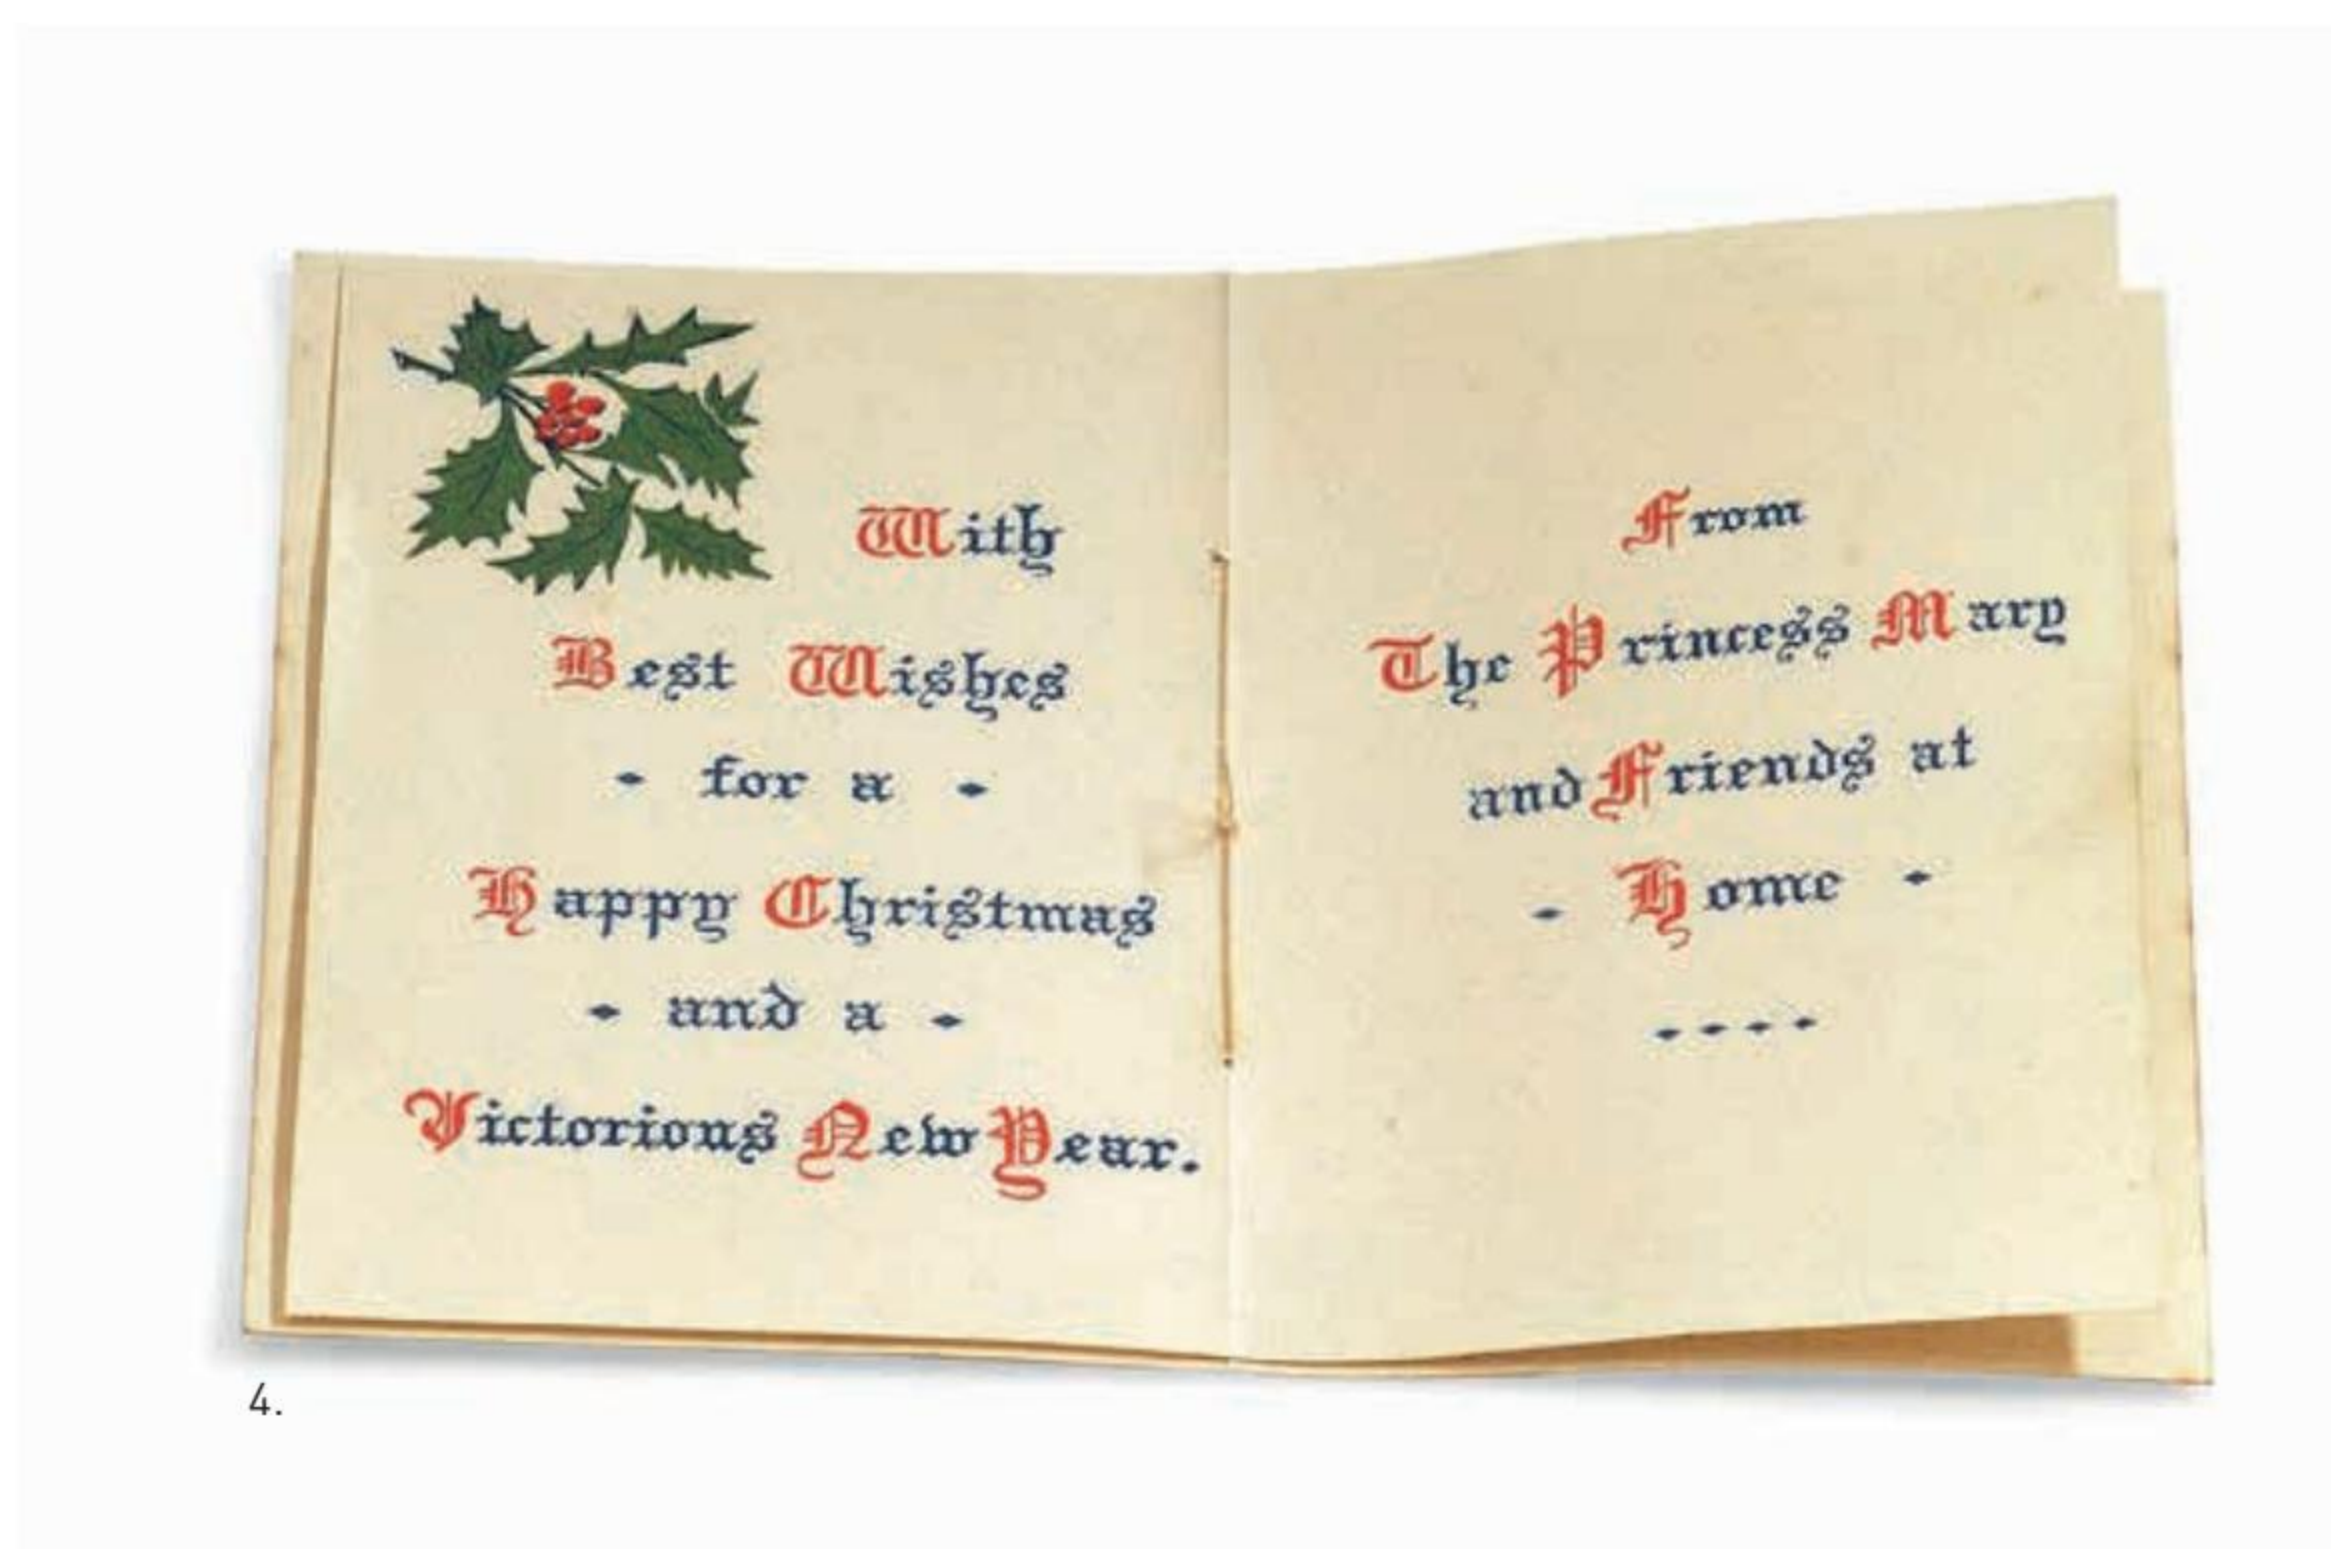 With
Best Wishes
- for a -
Happy Christmas
- and a -
Victorious New Year.
From
The Princess Mary
and Friends at
- Home -
4.